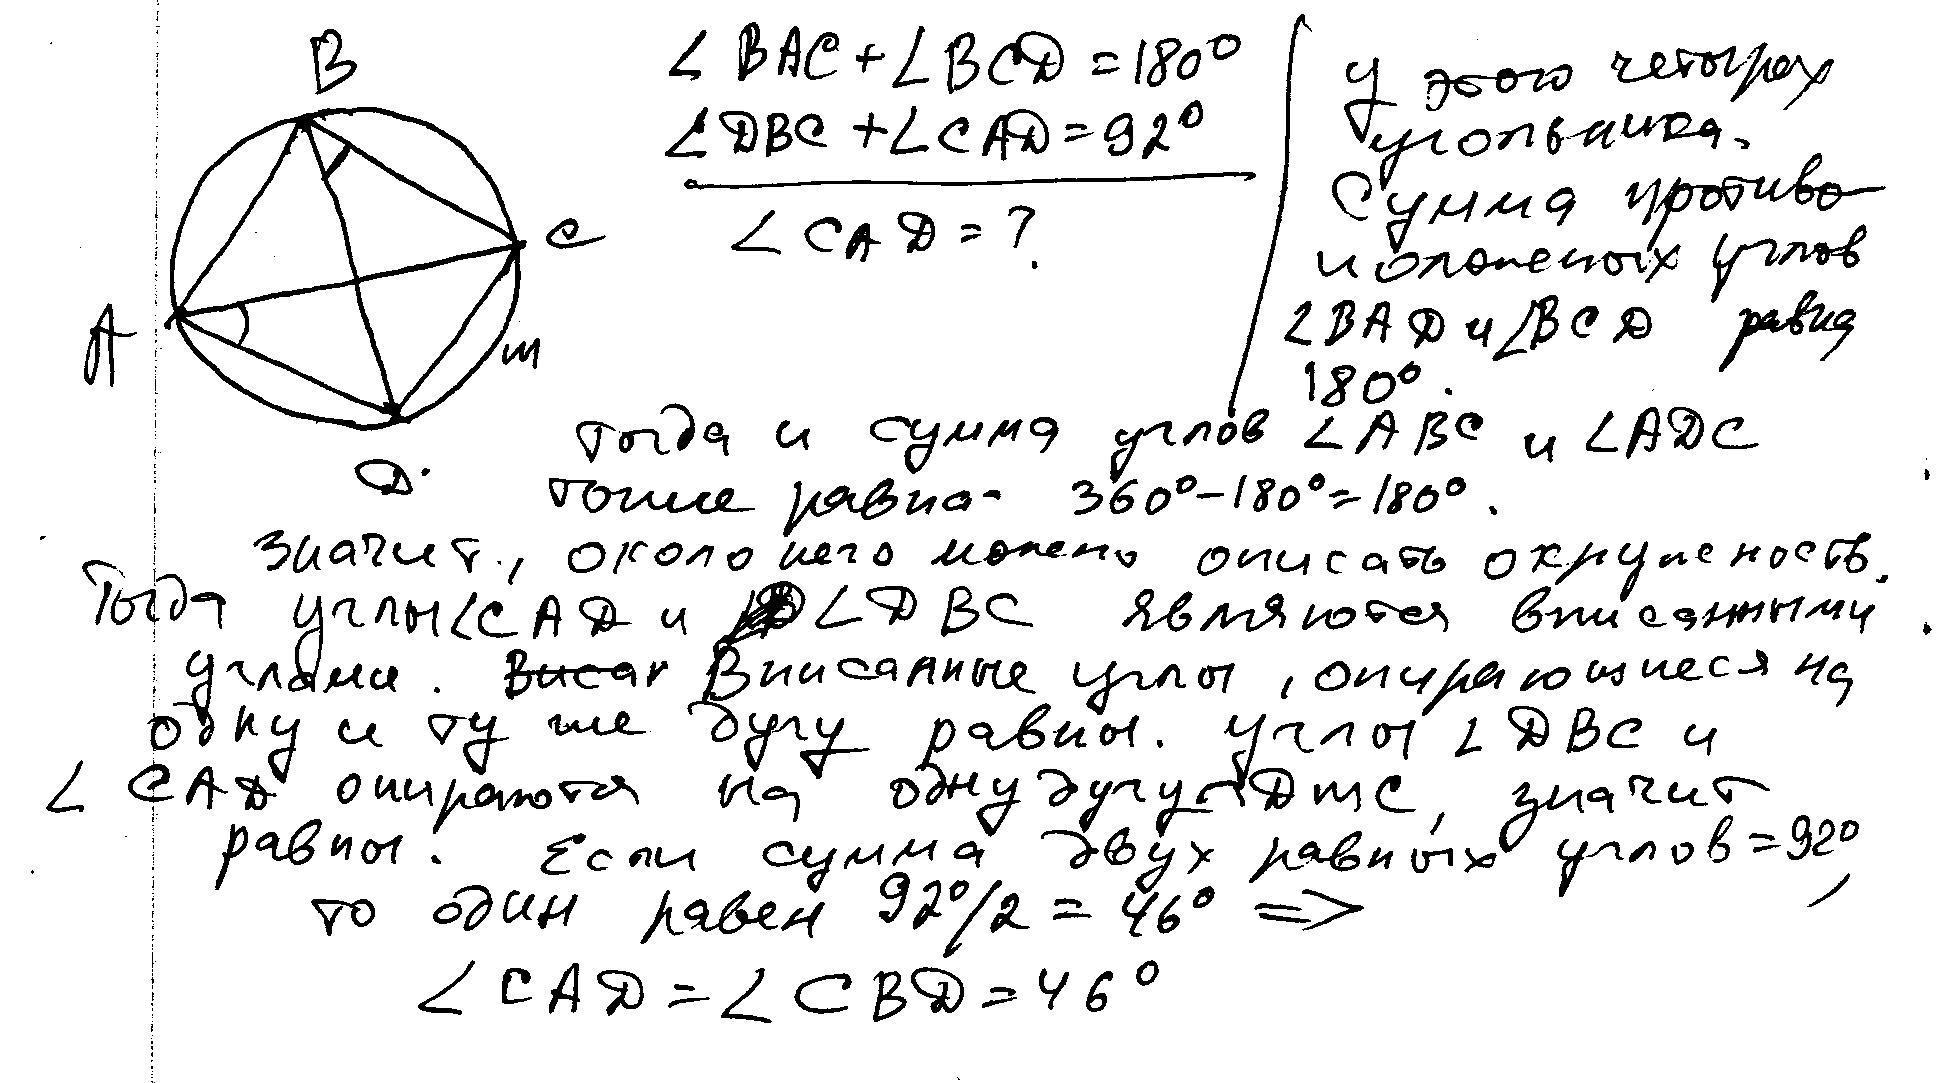 B
C
A
m
D.
∠BAC + ∠BCD = 180°
∠DBC + ∠CAD = 92°
∠CAD = ?
У этого четырех
угольника.
Сумма противо
положеных углов
∠BAD и ∠BCD равна
180°.
Тогда и сумма углов ∠ABC и ∠ADC
тоже равна 360° - 180° = 180°.
Значит, около него можно описать окружность.
Тогда углы ∠CAD и ∠DBC являются вписанными
углами. Висан Вписанные углы, опирающиеся на
одну и ту же дугу равны. Углы ∠DBC и
∠CAD опираются на одну дугу DmC, значит
равны. Если сумма двух равных углов = 92°,
то один равен 92°/2 = 46° =>
∠CAD = ∠CBD = 46°